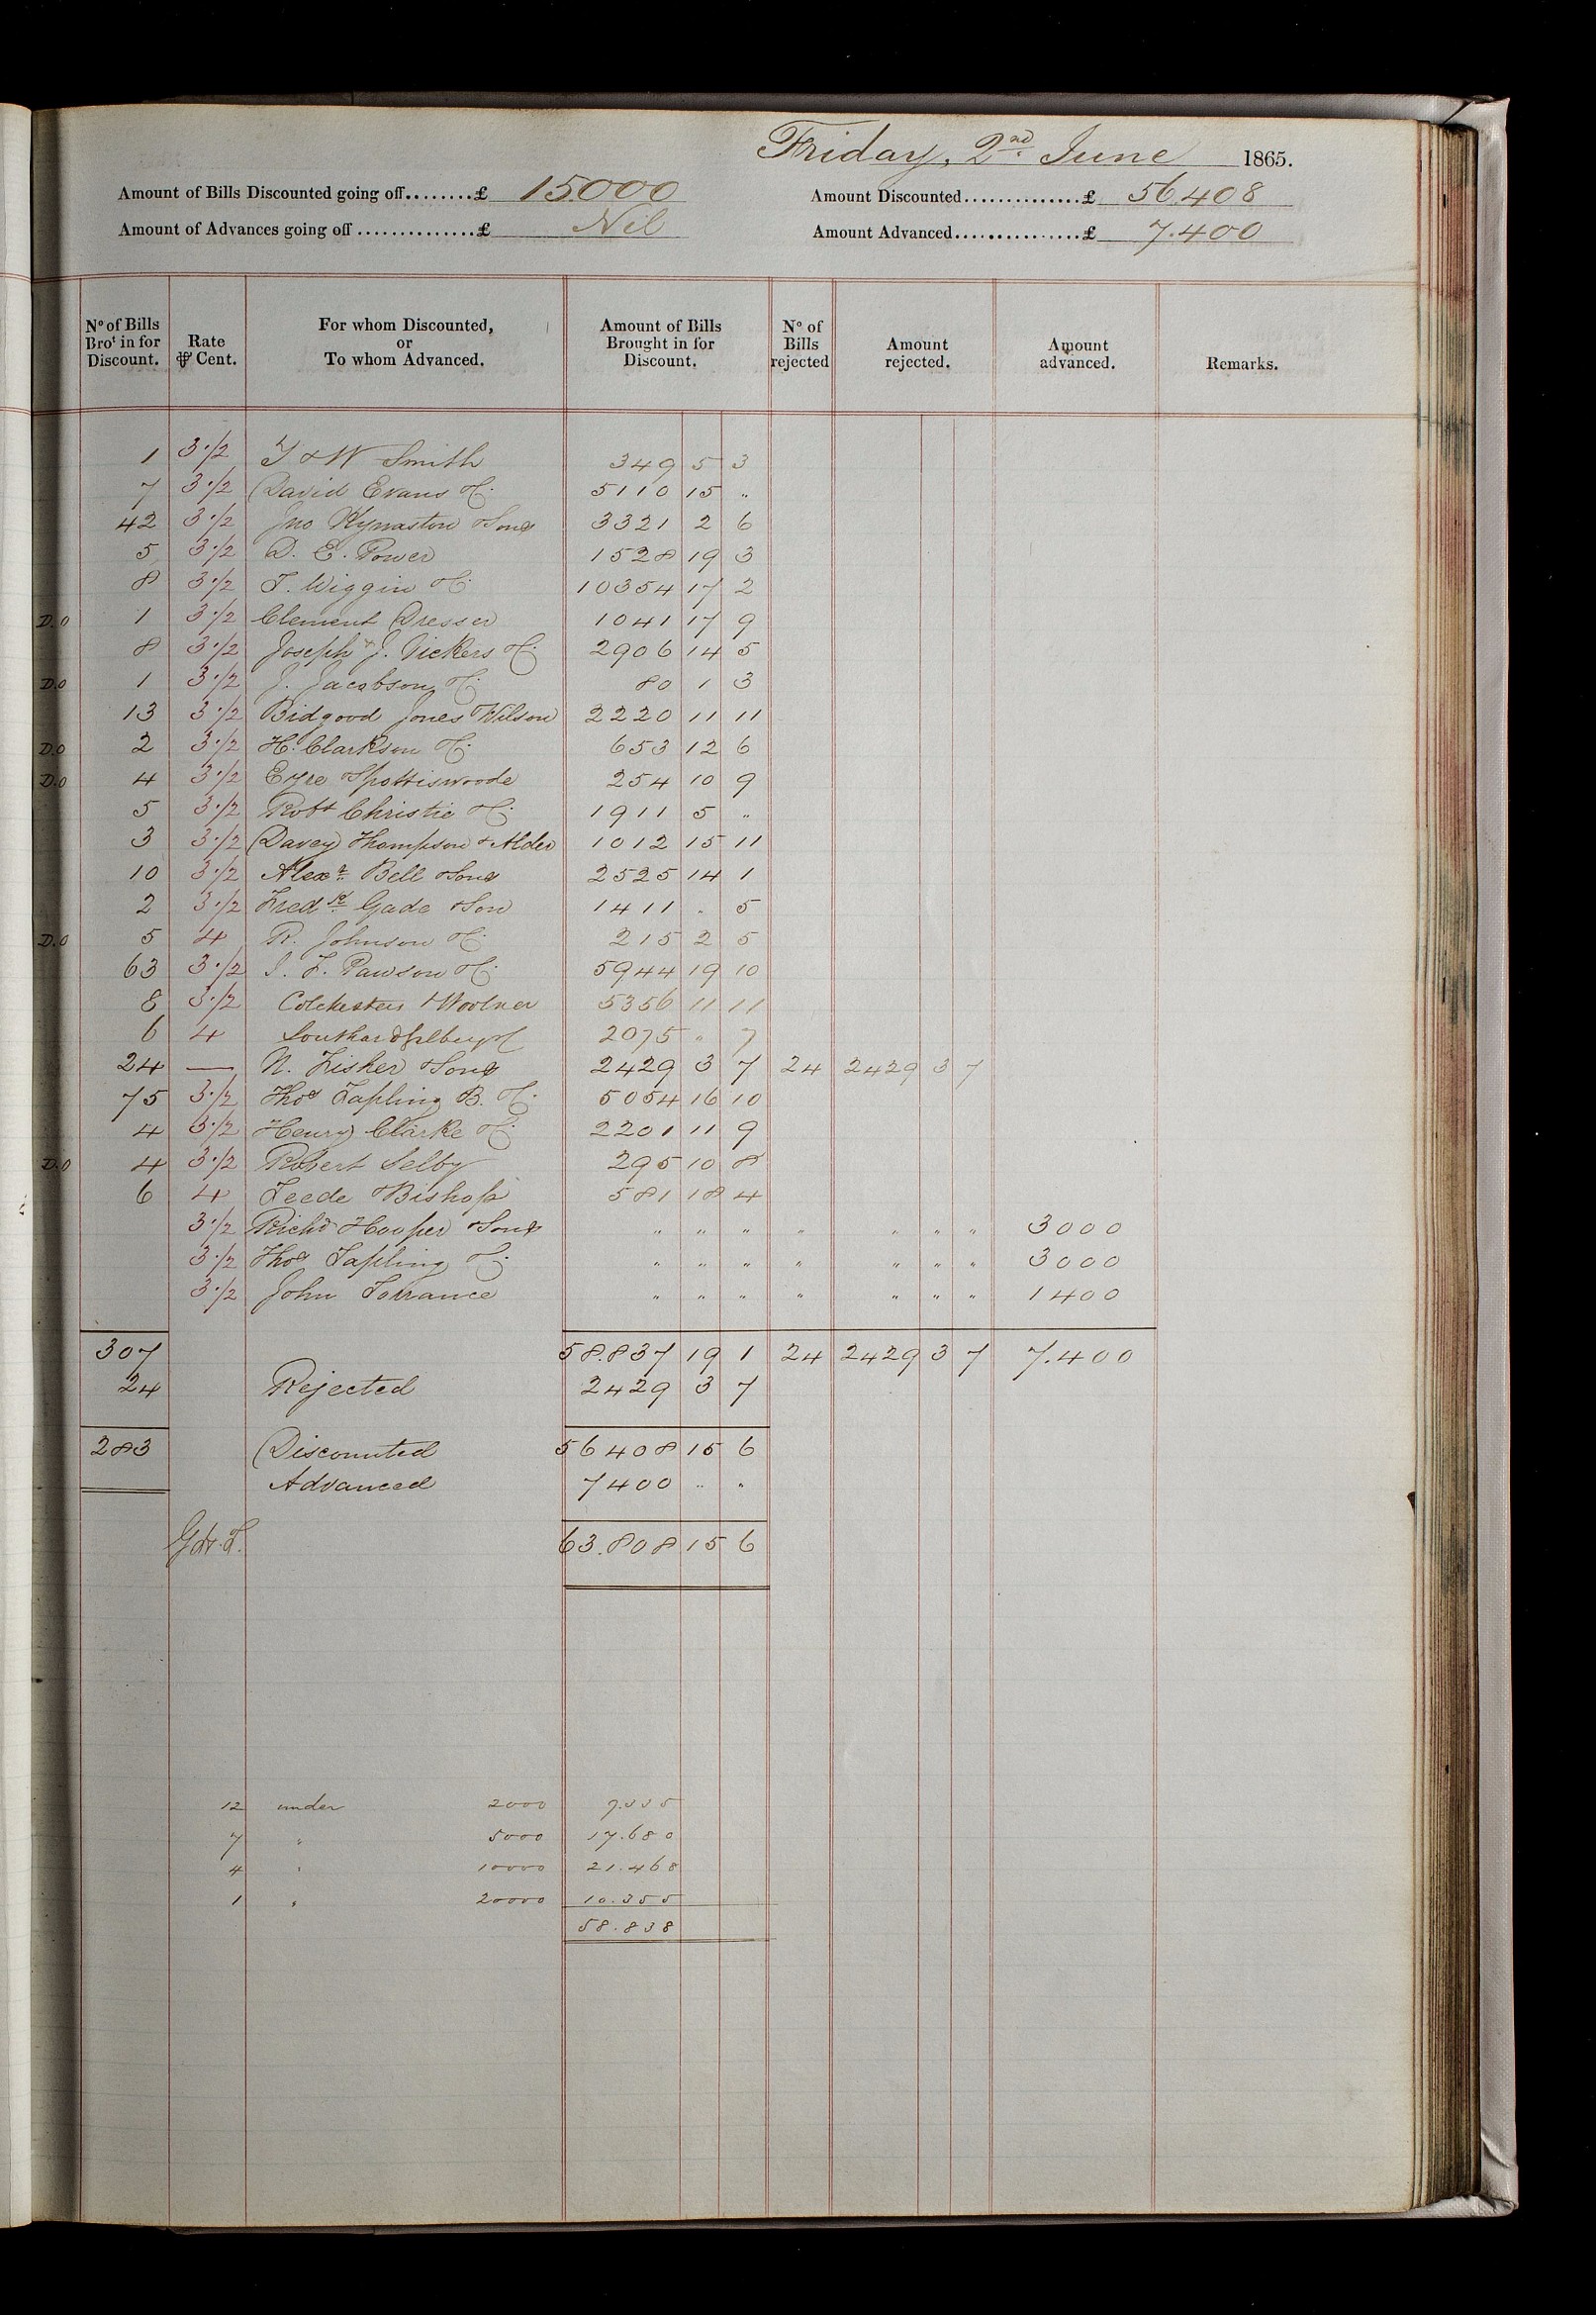 Friday, 2nd June 1865.
Amount of Bills Discounted going off........£ 15000 Amount Discounted..............£ 56.408
Amount of Advances going off..............£ Nil Amount Advanced...............£ 7.400
No of Bills Brot in for Discount. Rate ⅌ Cent. For whom Discounted, or To whom Advanced. Amount of Bills Brought in for Discount. No of Bills rejected Amount rejected. Amount advanced. Remarks.
1 3·/2 T & W Smith 349 5 3
7 3·/2 David Evans & Co 5110 15 "
42 3·/2 Jno Kynaston & Sons 3321 2 6
5 3·/2 D. E. Power 1528 19 3
8 3·/2 T. Wiggin & Co 10354 17 2
D.O 1 3·/2 Clement Dresser 1041 17 9
8 3·/2 Joseph & J. Vickers & Co 2906 14 5
D.O 1 3·/2 J. Jacobson & Co 80 1 3
13 3·/2 Bidgood Jones & Wilson 2220 11 11
D.O 2 3·/2 H. Clarkson & Co 653 12 6
D.O 4 3·/2 Eyre & Spottiswoode 254 10 9
5 3·/2 Robt Christie & Co 1911 5 "
3 3·/2 Davey Thompson & Alder 1012 15 11
10 3·/2 Alexr Bell & Sons 2525 14 1
2 3·/2 Fredk Gade & Son 1411 " 5
D.O 5 4 R. Johnson & Co 215 2 5
63 3·/2 J. F. Pawson & Co 5944 19 10
8 3·/2 Colchester & Woolner 5356 11 11
6 4 2075 " 7
24 — N. Fisher & Sons 2429 3 7 24 2429 3 7
75 3·/2 Thos Tapling B. & Co 5054 16 10
4 3·/2 Henry Clarke & Co 2201 11 9
D.O 4 3·/2 Robert Selby 295 10 8
6 4 Leede & Bishop 581 18 4
3·/2 Richd Hooper & Sons " " " " " " " 3000
3·/2 Thos Tapling & Co " " " " " " " 3000
3·/2 John Torrance " " " " " " " 1400
307 58.837 19 1 24 2429 3 7 7.400
24 Rejected 2429 3 7
283 Discounted 56408 15 6
Advanced 7400 " "
63.808 15 6
12 under 2000 9.335
7 " 5000 17.680
4 " 10000 21.468
1 " 20000 10.355
58.838